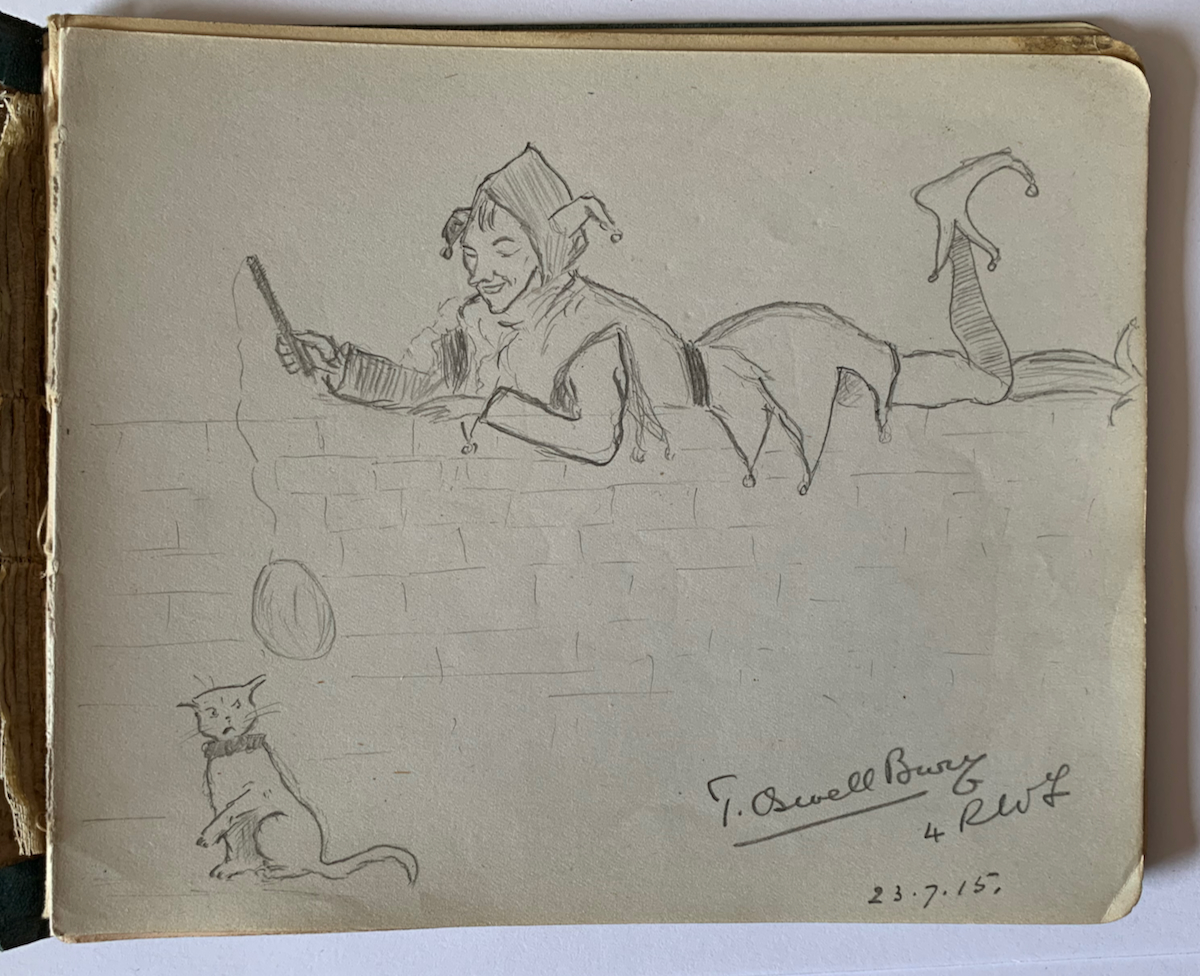 T. Oswell Bury
4 RWF
23.7.15.